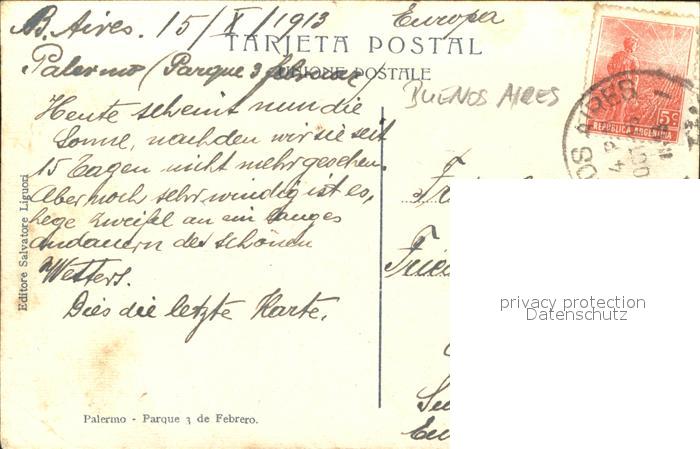 B. Aires. 15/X/1913 Europa
TARJETA POSTAL
Palermo (Parque 3 febrero)
UNIONE POSTALE
BUENOS AIRES
5c.
REPUBLICA ARGENTINA
OS AIRES
Heute scheint nun die
Sonne, nachdem wir sie seit
15 Tagen nicht mehr gesehen.
Aber noch sehr windig ist es,
hege Zweifel an ein langes
andauern des schönen
Wetters.
Dies die letzte Karte.
Editore Salvatore Liguori
privacy protection
Datenschutz
Palermo - Parque 3 de Febrero.